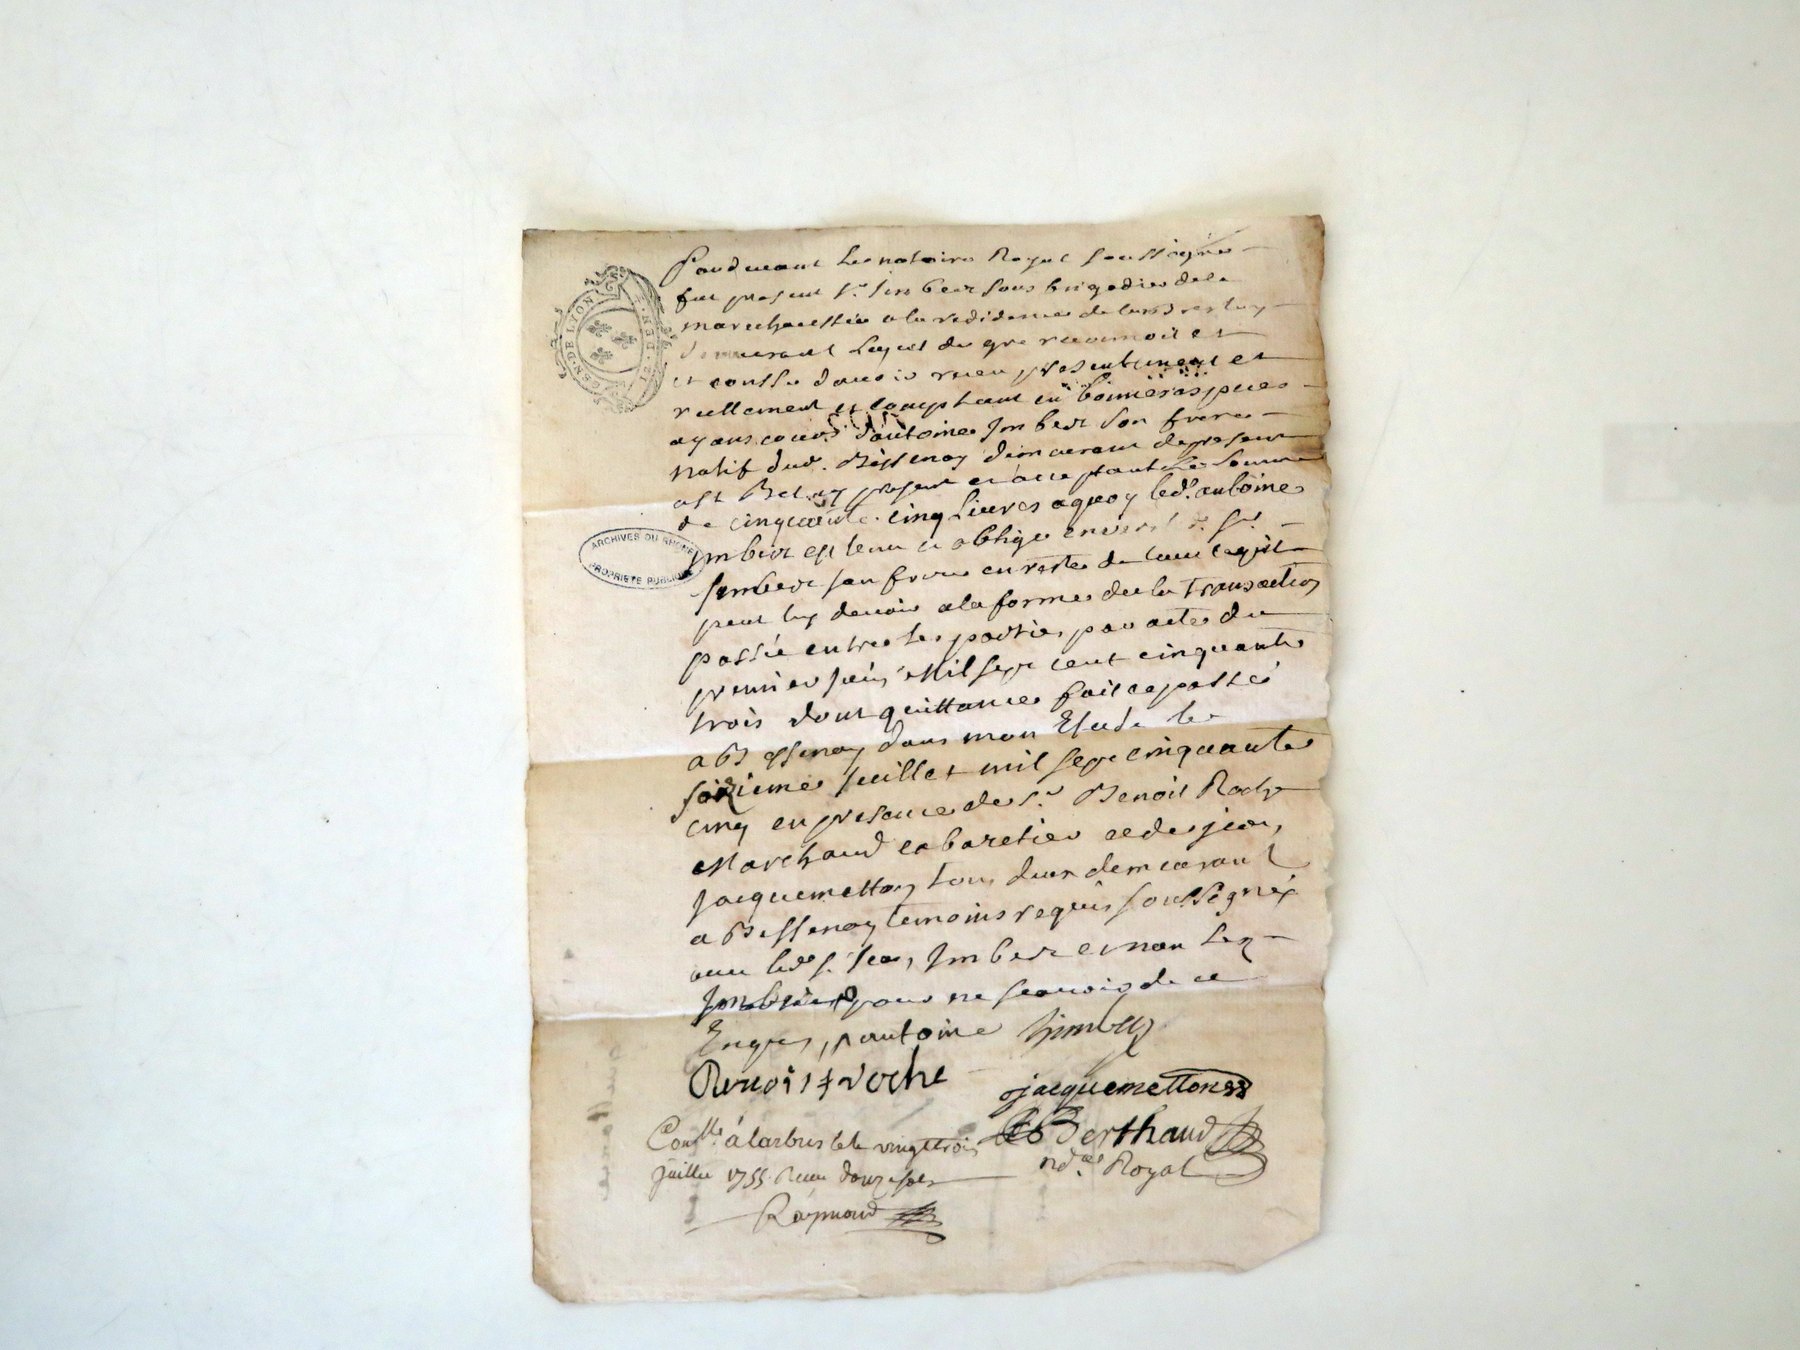 GEN. DE LION
ARCHIVES DU RHONE
PROPRIETE PUBLIQUE
Pardevant le notaire Royal soussigné
fut present Sr. Imbert sous brigadier de la
marechaussée a la residence de
demeurant lequel de gré reconnoit et
et confesse d'avoir receu presentement et
reellement et comptant en bonnes especes
ayans cours d'antoine Imbert son frere
natif dud. Bessenay demeurant de present
a St Bel present et acceptant la somme
de cinquante cinq livres aquoy led. antoine
Imbert est tenu et obligé envers led. Sr.
Imbert son frere en reste de tout ce qu'il
peut luy devoir a la forme de la transaction
passée entre les parties par acte du
premier juin Mil sept cent cinquante
trois dont quittance fait et passé
a Bessenay dans mon Etude le
seizieme juillet mil sept cinquante
cinq en presence de Sr. Benoit Roche
Marchand cabaretier et de jean
jacquemetton tous deux demeurant
a Bessenay temoins requis soussignés
avec led. S. Imbert et non led.
Imbert pour ne scavoir de ce
Enquis, antoine Himbert
Benoist roche
jacquemetton
Berthaud
nore Royal
Conllé à larbresle le vingt trois
juillet 1755 Receu douze sols
Raymond